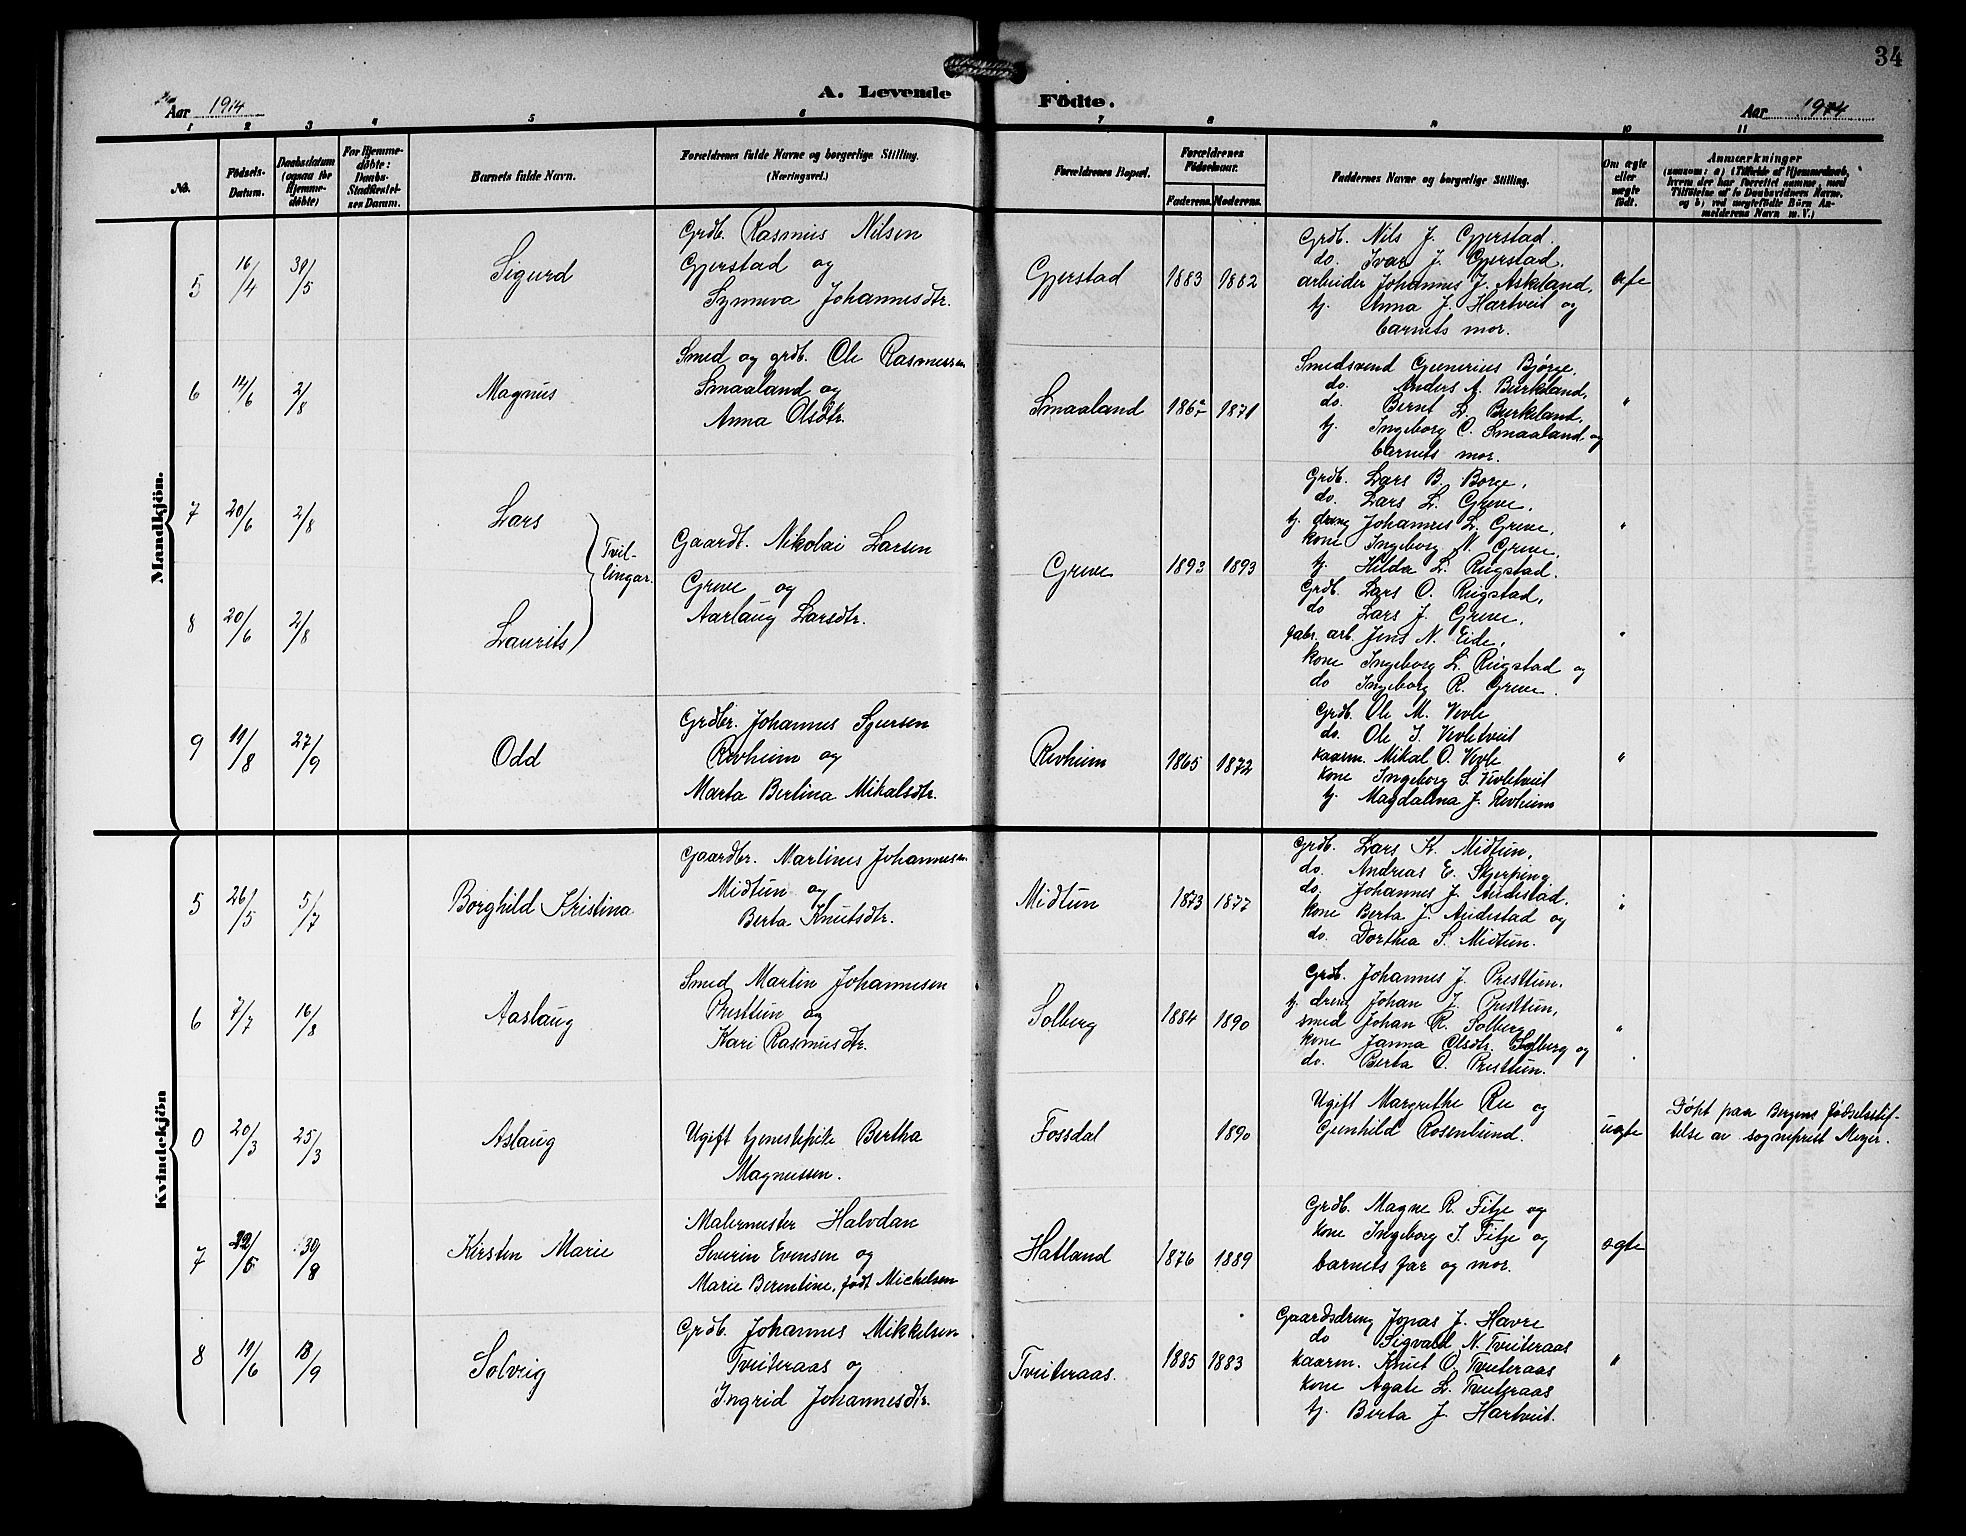 34
Aar 1914 A. Levende Födte. Aar 1914
1 2 3 4 5 6 7 8 9 10 11
No. Födsels-Datum. Daabsdatum (ogsaa for Hjemme-döbte) For Hjemme-döbte: Daabs-Stadfæstel-ses Datum. Barnets fulde Navn. Forældrenes fulde Navne og borgerlige Stilling. (Næringsvei.) Forældrenes Bopæl. Forældrenes Födselsaar. Faderens. Moderens. Faddernes Navne og borgerlige Stilling. Om ægte eller uægte födt. Anmærkninger
(saasom: a) (Tilfælde af Hjemmedaab,
hvem der har forrettet samme, med
Tilföielse af to Daabsvidners Navne,
og b) ved uægtefödte Börn An-
melderens Navn m. V.)
Mandkjön.
5 16/4 31/5 Sigurd
Grdb. Rasmus Nilsen
Gjerstad og
Synneva Johannesdtr.
Gjerstad 1883 1882
Grdb. Nils J. Gjerstad.
do. Ivar J. Gjerstad,
arbeider Johannes J. Askeland,
tj. Anna J. Hartveit og
barnets mor.
egte
6 14/6 2/8 Magnus
Smed og grdb. Ole Rasmussen
Smaaland og
Anna Olsdtr.
Smaaland 1871
Smedsvend Gunerius Bjørge,
do. Anders A. Burkeland,
do. Bernt L. Burkeland,
tj. Ingeborg O. Smaaland og
barnets mor.
"
7 20/6 2/8 Lars
8 20/6 2/8 Laurits
Tvil-
lingar.
Gaardb. Nikolai Larsen
Greve og
Aarlaug Larsdtr.
Greve 1893 1893
Grdb. Lars B. Borge,
do. Lars L. Greve,
tj. dreng Johannes L. Greve,
kone Ingeborg N. Greve,
tj. Hilda L. Rugstad.
"
Grdb. Lars O. Rugstad,
do Lars J. Greve,
fabr. arb. Jens N. Eide,
kone Ingeborg L. Rugstad og
do Ingeborg R. Greve.
"
9 11/8 27/9 Odd
Grdbr. Johannes Sjursen
Revheim og
Marta Bertina Mikalsdtr.
Revheim 1865 1872
Grdb. Ole M. Vevle
do. Ole I. Vevletveit
kaarm. Mikal O. Vevle
kone Ingeborg S. Vevletveit
tj. Magdalena J. Revheim
"
Kvindekjön
5 26/5 5/7 Borghild Kristina
Gaardbr. Martines Johannesen
Midtun og
Berta Knutsdtr.
Midtun 1873 1877
Grdb. Lars K. Midtun,
do. Andreas E. Skjerping
do. Johannes J. Audestad.
kone Berta J. Audestad og
do. Dorthea S. Midtun.
"
6 7/7 16/8 Aaslaug
Smed Martin Johannesen
Presttun og
Kari Rasmusdtr.
Solberg 1884 1890
Grdb. Johannes J. Presttun.
tj. dreng Johan J. Presttun,
smed Johan R. Solberg
kone Janna Olsdtr. Solberg og
do. Berta O. Presttun.
"
0 20/3 25/3 Aslaug
Ugift tjenestepike Bertha
Magnussen.
Fossdal 1890
Ugift Margrethe Ru og
Gunhild Rosenlund.
uegte
Døpt paa Bergens fødselsstif-
telse av sogneprest Meyer.
7 30/8 Kirsten Marie
Malermester Halvdan
Severin Evensen og
Marie Berentine, født Michelsen
Hatland 1876 1889
Grdb. Magne R. Fitje og
kone Ingeborg S. Fitje og
barnets far og mor.
egte
8 19/6 13/9 Solveig
Grdb. Johannes Mikkelsen
Tveiteraas og
Ingrid Johannesdtr.
Tveiteraas. 1885 1883
Gaardsdreng Jonas J. Havre
do Sigvald N. Tveiteraas
kaarm. Knut O. Tveiteraas
kone Agate L. Tveiteraas
tj. Berta J. Hartveit.
"